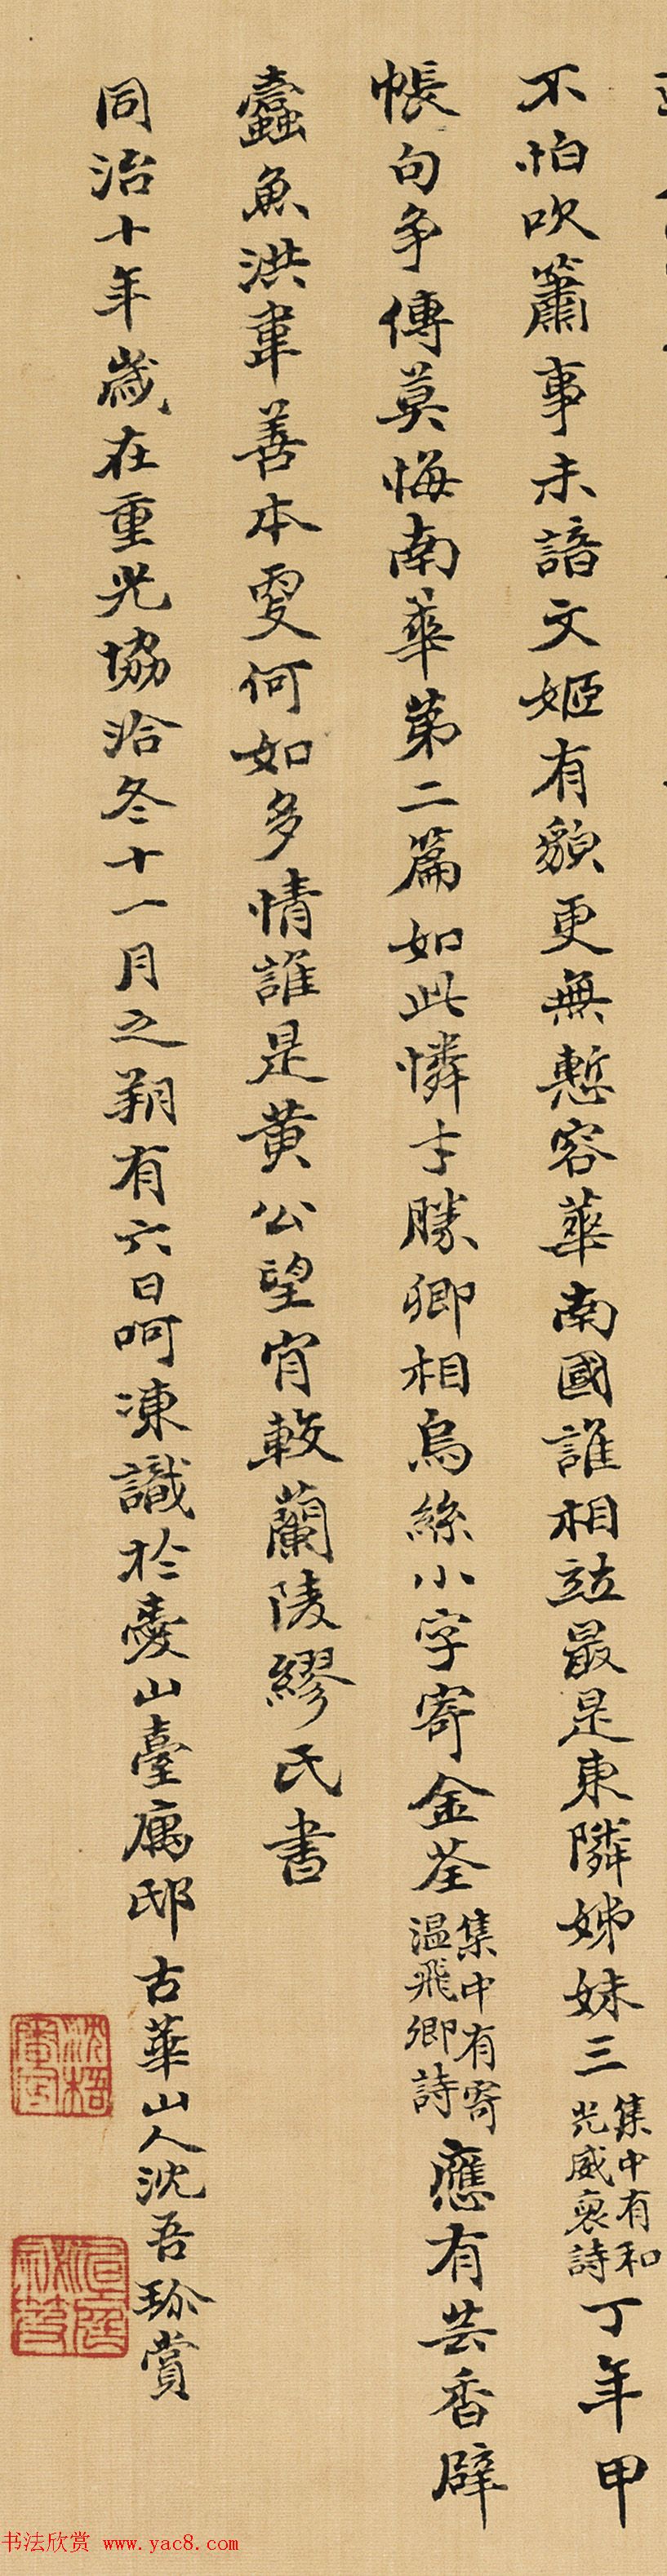 不怕吹簫事未諳文姬有貌更無慙容華南國誰相竝最是東隣姊妹三集中有和光威裒詩丁年甲
帳句争傳莫悔南華第二篇如此憐才勝卿相烏絲小字寄金荃集中有寄溫飛卿詩應有芸香辟
蠹魚洪韋善本夐何如多情誰是黄公望肯較蘭陵繆氏書
同治十年歲在重光協洽冬十一月之朔有六日呵凍識於臺山臺寓邸古華山人沈吾珍賞
书法欣赏 www.yac8.com